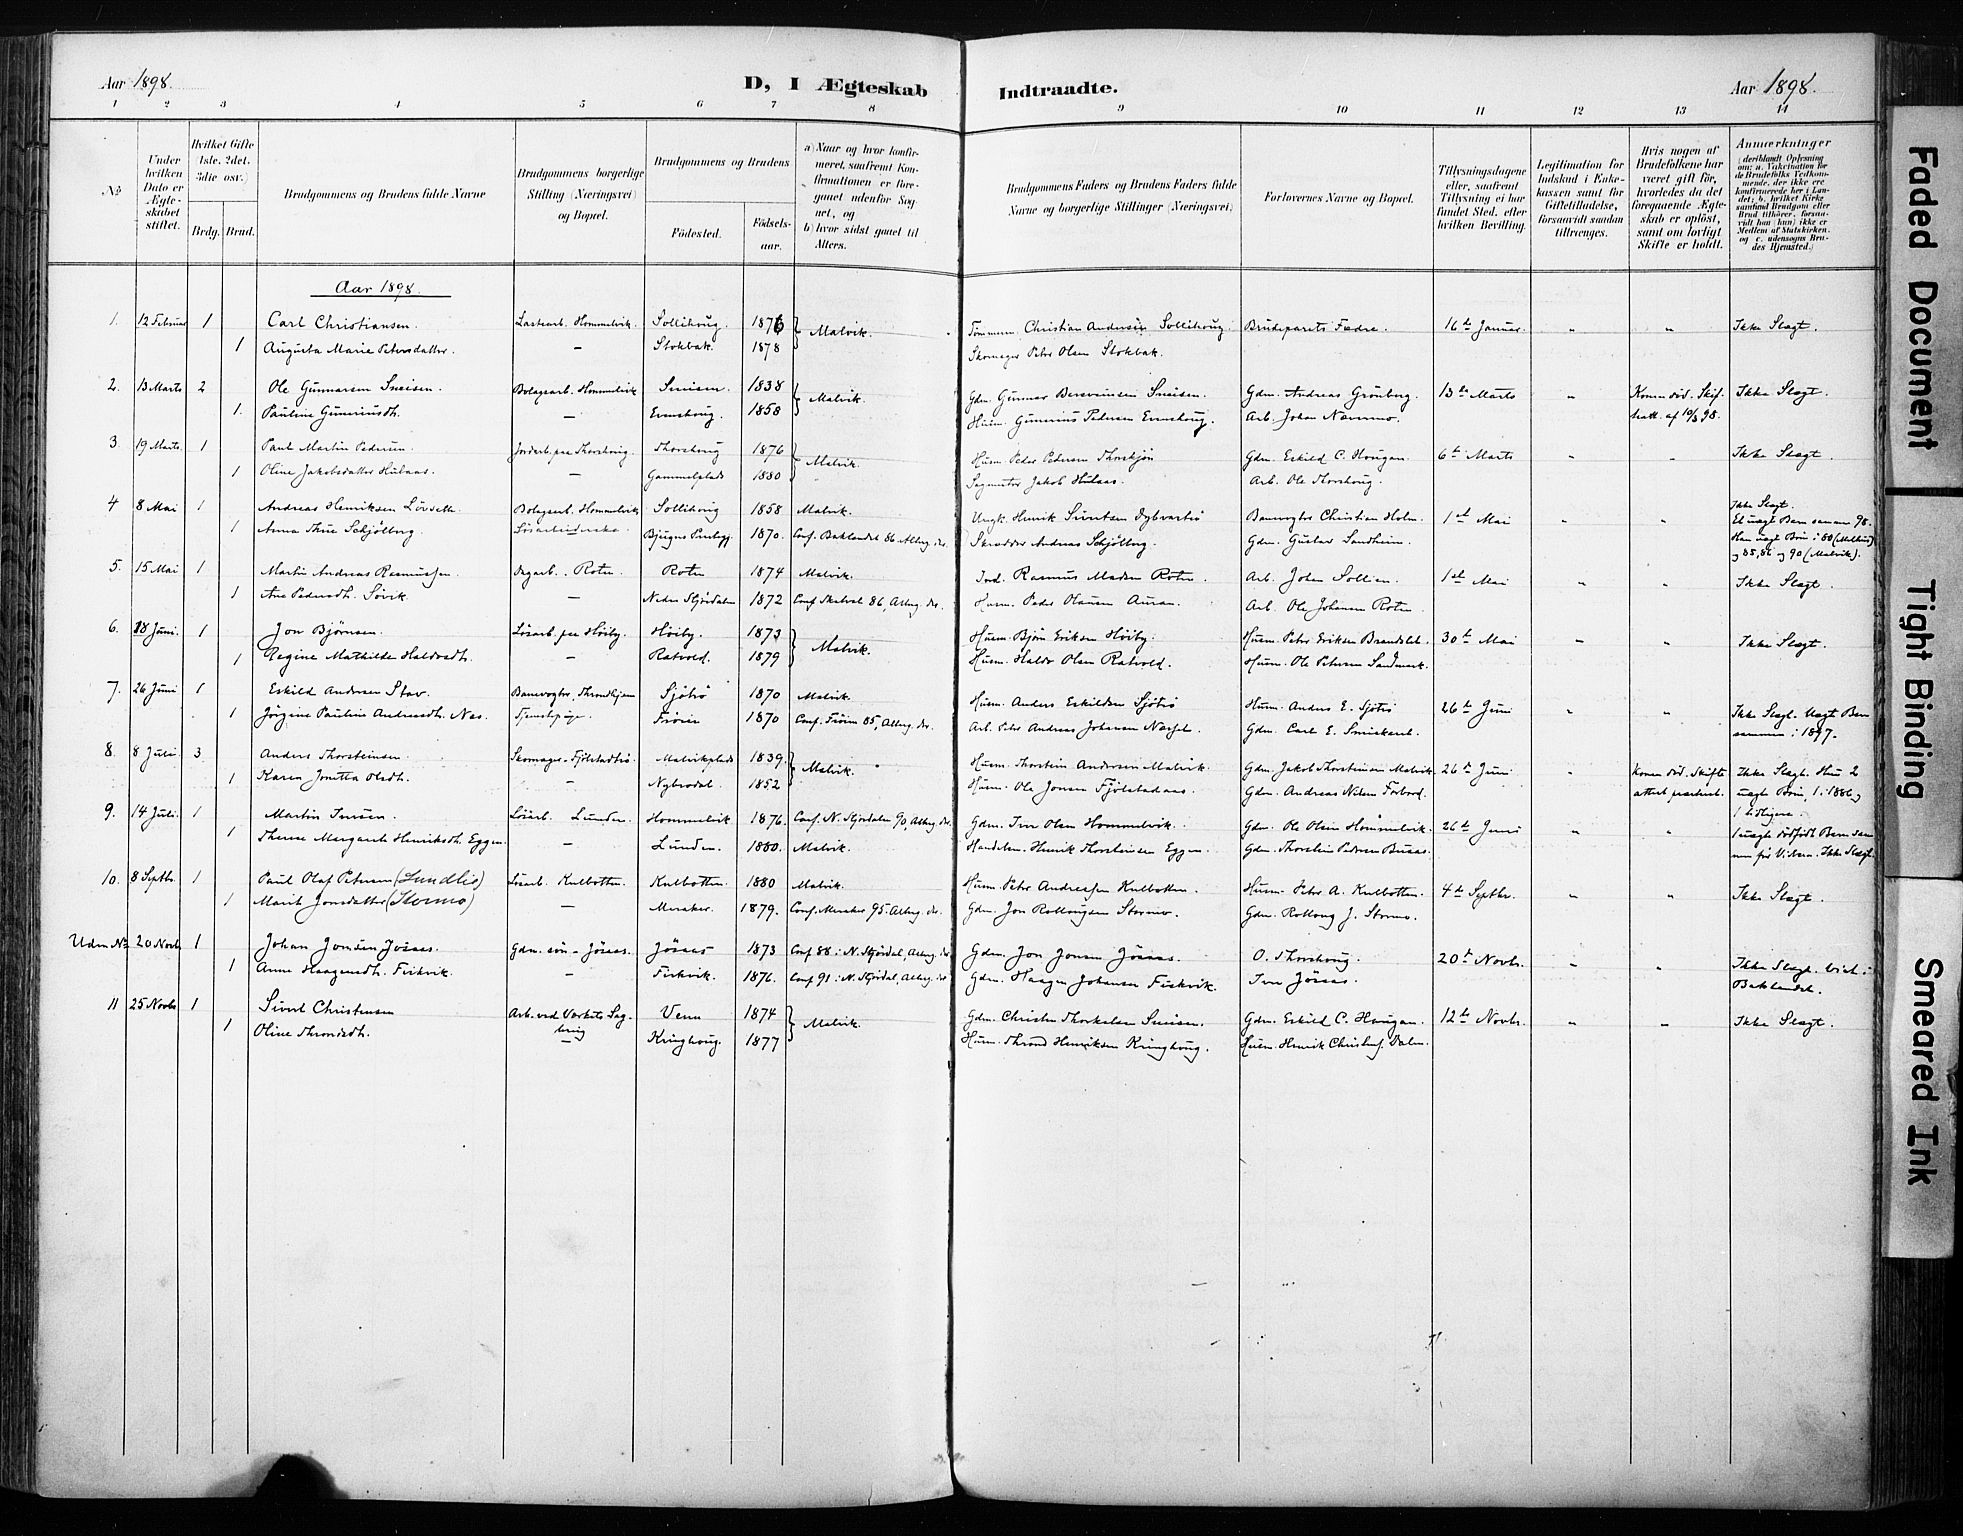 Aar 1898.
D, I Ægteskab Indtraadte.
Aar 1898.
1 2 3 4 5 6 7 8 9 10 11 12 13 14
No
Under hvilken Dato er Ægteskabet stiftet.
Hvilket Gifte (1ste, 2det, 3die osv.)
Brdg. Brud.
Brudgommens og Brudens fulde Navne
Brudgommens borgerlige Stilling (Næringsvei) og Bopæl.
Brudgommens og Brudens
Fødested.
Fødselsaar.
a) Naar og hvor konfirmeret, saafremt Konfirmationen er foregaaet udenfor Sognet, og
b) hvor sidst gaaet til Alters.
Brudgommens Faders og Brudens Faders fulde Navne og borgerlige Stillinger (Næringsvei)
Forlovernes Navne og Bopæl.
Tillysningsdagene eller, saafremt Tillysning ei har fundet Sted, efter hvilken Bevilling.
Legitimation for Indskud i Enkekassen samt for Giftetilladelse, forsaavidt saadan tiltrænges.
Hvis nogen af Brudefolkene har været gift før, hvorledes da det foregaaende Ægteskab er opløst, samt om lovligt Skifte er holdt.
Anmærkninger
(deriblandt Oplysning om: a. Vakcination for de Brudefolks Vedkommende, der ikke ere konfirmerede her i Landet; b. hvilket Kirkesamfund Brudgom eller Brud tilhører, forsaavidt han (hun) ikke er Medlem af Statskirken, og c. udensogns Brudes Hjemsted.)
Aar 1898.
1. 12 Februar 1 Carl Christiansen. Lastearb. Hommelvik. Sollihoug. 1876 Malvik. Tømmerm. Christian Andersen Sollihoug Brudeparets Fædre. 16de Januar. " " Ikke Slægt
1 Augusta Marie Petersdatter. — Stokbak. 1878 Skomager Peter Olsen Stokbak.
2. 13 Marts 2 Ole Gunnarsen Sneisen. Bolagsarb. Hommelvik Sneisen. 1838 Malvik. Gdm. Gunnar Bersveinsen Sneisen. Gdm. Andreas Grönberg. 13de Marts " Konen död. Skifteatt. af 10/3 98. Ikke Slægt.
1. Pauline Gunneriusdt. — 1858 Husm. Gunnerius Pedersen Arb. Johan
3. 19 Marts. 1 Paul Martin Pedersen. Jordarb. paa Thorshoug. Thorshoug 1876 Malvik. Husm. Peder Pedersen Gdm. Eskild C. Hougan. 6te Marts " " Ikke Slægt.
1 Oline Jakobsdatter Hulaas. — Gammelplads 1880 Sagmester Jakob Hulaas. Arb. Ole Thorshoug.
4 8 Mai 1 Andreas Henriksen Lövseth. Bolagsarb. Hommelvik Sollihoug 1858 Malvik. Ungk. Henrik Banevogter Christian Holm. 1ste Mai " " Ikke Slægt.
1 Anna Thea Schjölberg. Bjugns Prestegj. 1870. Conf. Baklandet 86 Altbrg. do. Skrædder Andreas Schjölberg. Gdm. Gustav Sandheim. Et uægt Barn sammen 98.
Han uægt Börn i 80 (Melhus) og 85, 86 og 90 (Malvik).
5. 15 Mai 1 Martin Andreas Rasmussen. Dagarb. Roten. Roten 1874 Malvik. Jord. Rasmus Madsen Roten. Arb. Johan Sollien. 1ste Mai " " Ikke Slægt.
1 Ane Pedersdt. Sörvik. — Nedre Stjördalen 1872 Conf. Skatval 86, Altbrg. do. Husm. Peder Olausen Auran. Arb. Ole Johansen Roten
6. 18 Juni. 1 Jon Bjørnsen. Lösarb. paa Höiby. Höiby. 1873 Malvik. Husm. Björn Eriksen Höiby. Husm. Peter Eriksen Brandslet. 30te Mai " " Ikke Slægt.
1 Regine Mathilde Haldorsdt. — Ratvold. 1879 Husm. Haldor Olsen Ratvold. Husm. Ole Petersen Sandmark.
7. 26 Juni 1 Eskild Andersen Stav. Banevogter Throndhjem Sjötrö 1870 Malvik. Husm. Anders Eskildsen Sjötrö Husm. Anders E. Sjötrö 26de Juni " " Ikke Slægt. Uægt Barn sammen i 1897.
1 Jörgine Pauline Andreasdt. Næs. Tjenestepige. Fröien 1870 Conf. Fröien 85, Altbrg. do. Arb. Peter Andreas Johansen Gdm. Carl E.
8. 8 Juli. 3 Anders Thorsteinsen. Skomager Malvikplads 1839. Malvik. Husm. Thorstein Andersen Malvik. Gdm. Jakob Thorsteinsen Malvik 26de Juni " Konen död. Skifteattest præsteret. Ikke Slægt. Hun 2 uægte Börn, 1 i 1886 og 1 tidligere.
1 Karen Jonetta Olsdt. — Nybrodal. 1852 Husm. Ole Jonsen Gdm. Andreas Nilsen Forbord.
9. 14 Juli. 1 Martin Iversen. Lösarb. Lunden. Hommelvik 1876. Conf. N. Stjördalen 90, Altbrg. do. Gdm. Iver Olsen Hommelvik. Gdm. Ole Olsen Hommelvik. 26de Juni " " 1 uægte dödfödt Barn sammen før Vielsen. Ikke Slægt.
1 Therese Margareth Henriksdt. Eggen. — Lunden. 1880. Malvik. Handelsm. Henrik Thorsteinsen Eggen. Gdm. Thorstein Pedersen
10. 8 Septbr. 1 Paul Olaf Petersen (Sundlie) Lösarb. Kulbotten. Kulbotten. 1880 Malvik. Husm. Peter Andreasen Kulbotten. Husm. Peter A. Kulbotten. 4de Septbr. " " Ikke Slægt.
1 Marit Jonsdatter (Stormo) — Meraker. 1879. Conf. Meraker 95. Altbrg. do. Gdm. Jon Rollougsen Stormo. Gdm. Rolloug J. Stormo.
Uden No. 20 Novbr 1 Johan Jonsen Jösaas. Gdm. sön - Jösaas. Jösaas 1873 Conf 88 i N. Stjördal, Altbrg. do Gdm. Jon Jonsen Jösaas. O. Thorshoug. 20de Novbr. " " Ikke Slægt. Viet i Baklandet.
1 Anne Haagensdt. Firkvik. — Firkvik. 1876. Conf 91 i N. Stjördal, Altbrg. do Gdm. Haagen Johansen Firkvik. Iver Jösaas.
11 25 Novbr 1 Sivert Christensen Arb. ved Værkets Sagbrug Venn 1874 Malvik. Gdm. Christen Thorkelsen Sneisen. Gdm. Eskild C. Hougan. 12te Novbr. " " Ikke Slægt.
1 Oline Throndsdt. — Kringhoug. 1877 Husm. Thrond Henriksen Kringhoug. Husm. Henrik Christensf. Dalen.
Faded Document
Tight Binding
Smeared Ink